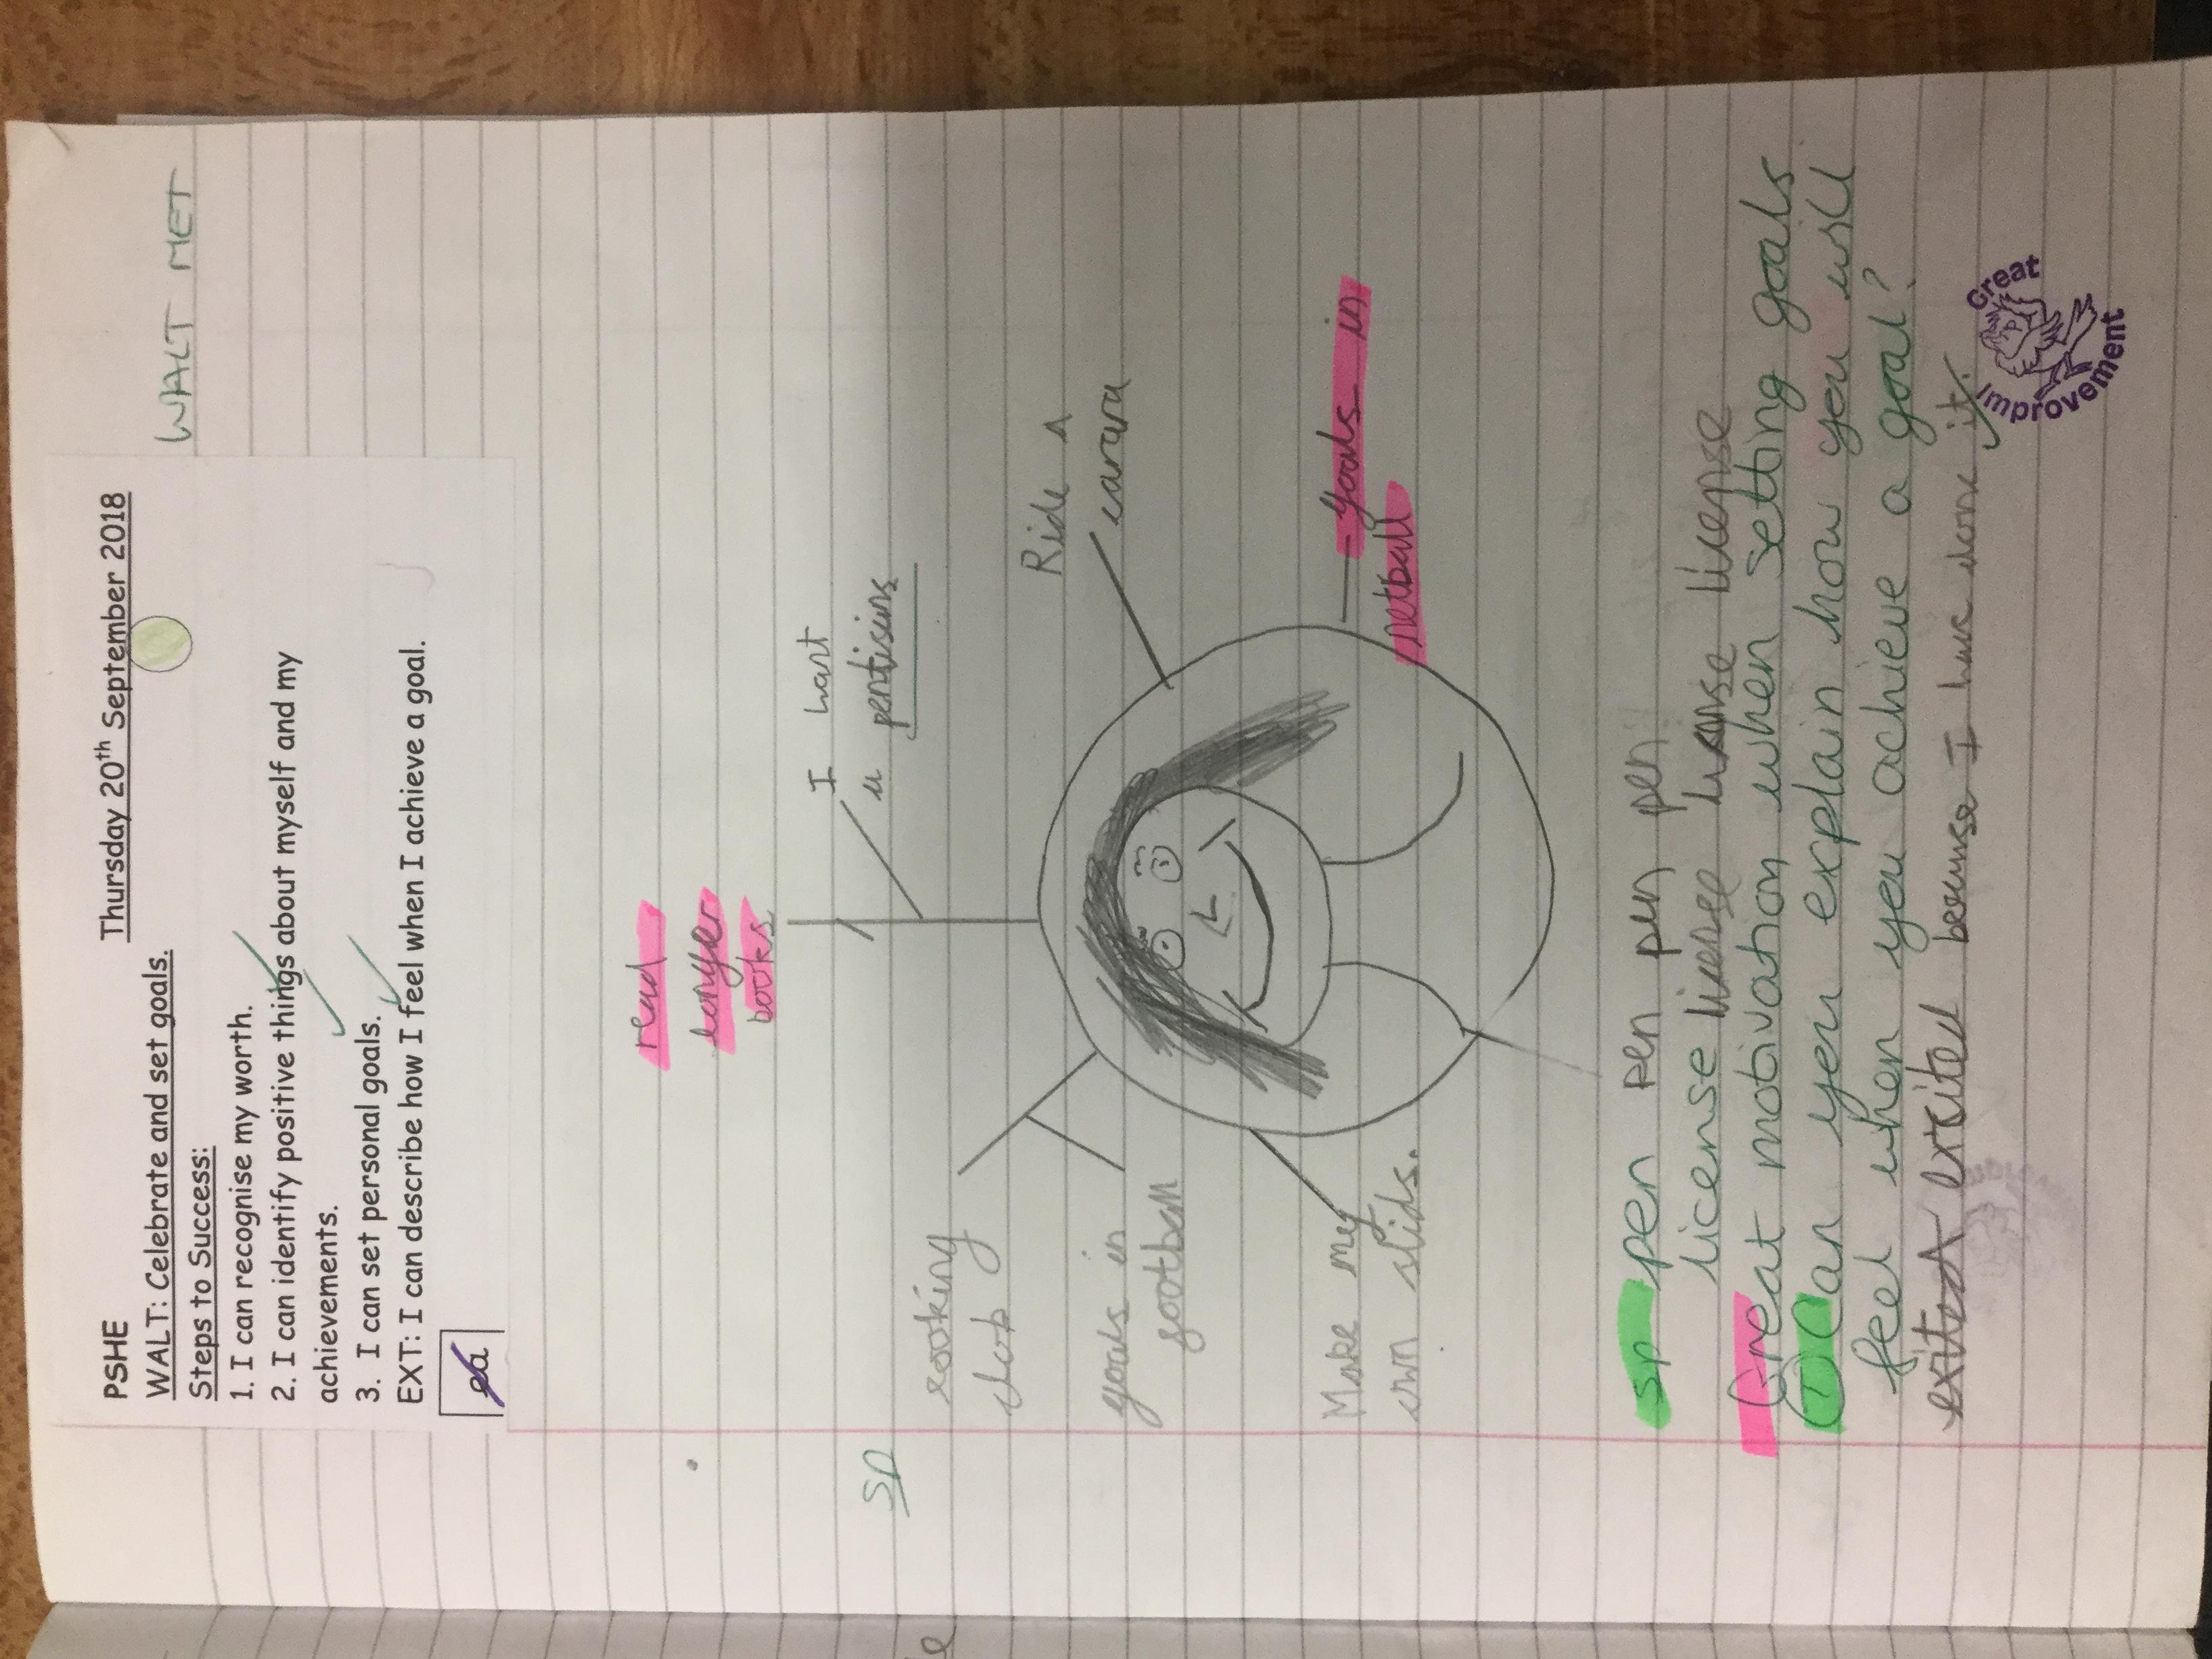 PSHE
Thursday 20th September 2018
WALT: Celebrate and set goals.
WALT MET
Steps to Success:
1. I can recognise my worth.
2. I can identify positive things about myself and my
achievements.
3. I can set personal goals.
EXT: I can describe how I feel when I achieve a goal.
read
longer
books
I
a pentisins
sp
cooking
club
Ride a
goals in
football
goals in
netball
Make my
own slids.
sp pen pen pen pen
license license license license
Great motivation when setting goals
T Can you explain how you will
feel when you achieve a goal?
exited because I have done it.
Great
Improvement